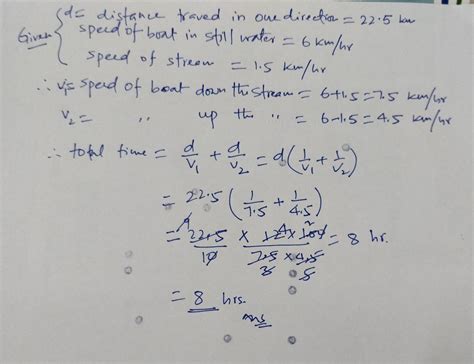 Given { d = distance traved in one direction = 22.5 km
speed of boat in still water = 6 km/hr
speed of stream = 1.5 km/hr
∴ v₁ = speed of boat down the stream = 6+1.5 = 7.5 km/hr
v₂ = ,, up the ,, = 6-1.5 = 4.5 km/hr
∴ total time = d/v₁ + d/v₂ = d(1/v₁ + 1/v₂)
= 22.5 (1/7.5 + 1/4.5)
= 22.5/10 × 12 × 100/7.5 × 4.5 = 8 hr.
= 8 hrs.
Ans